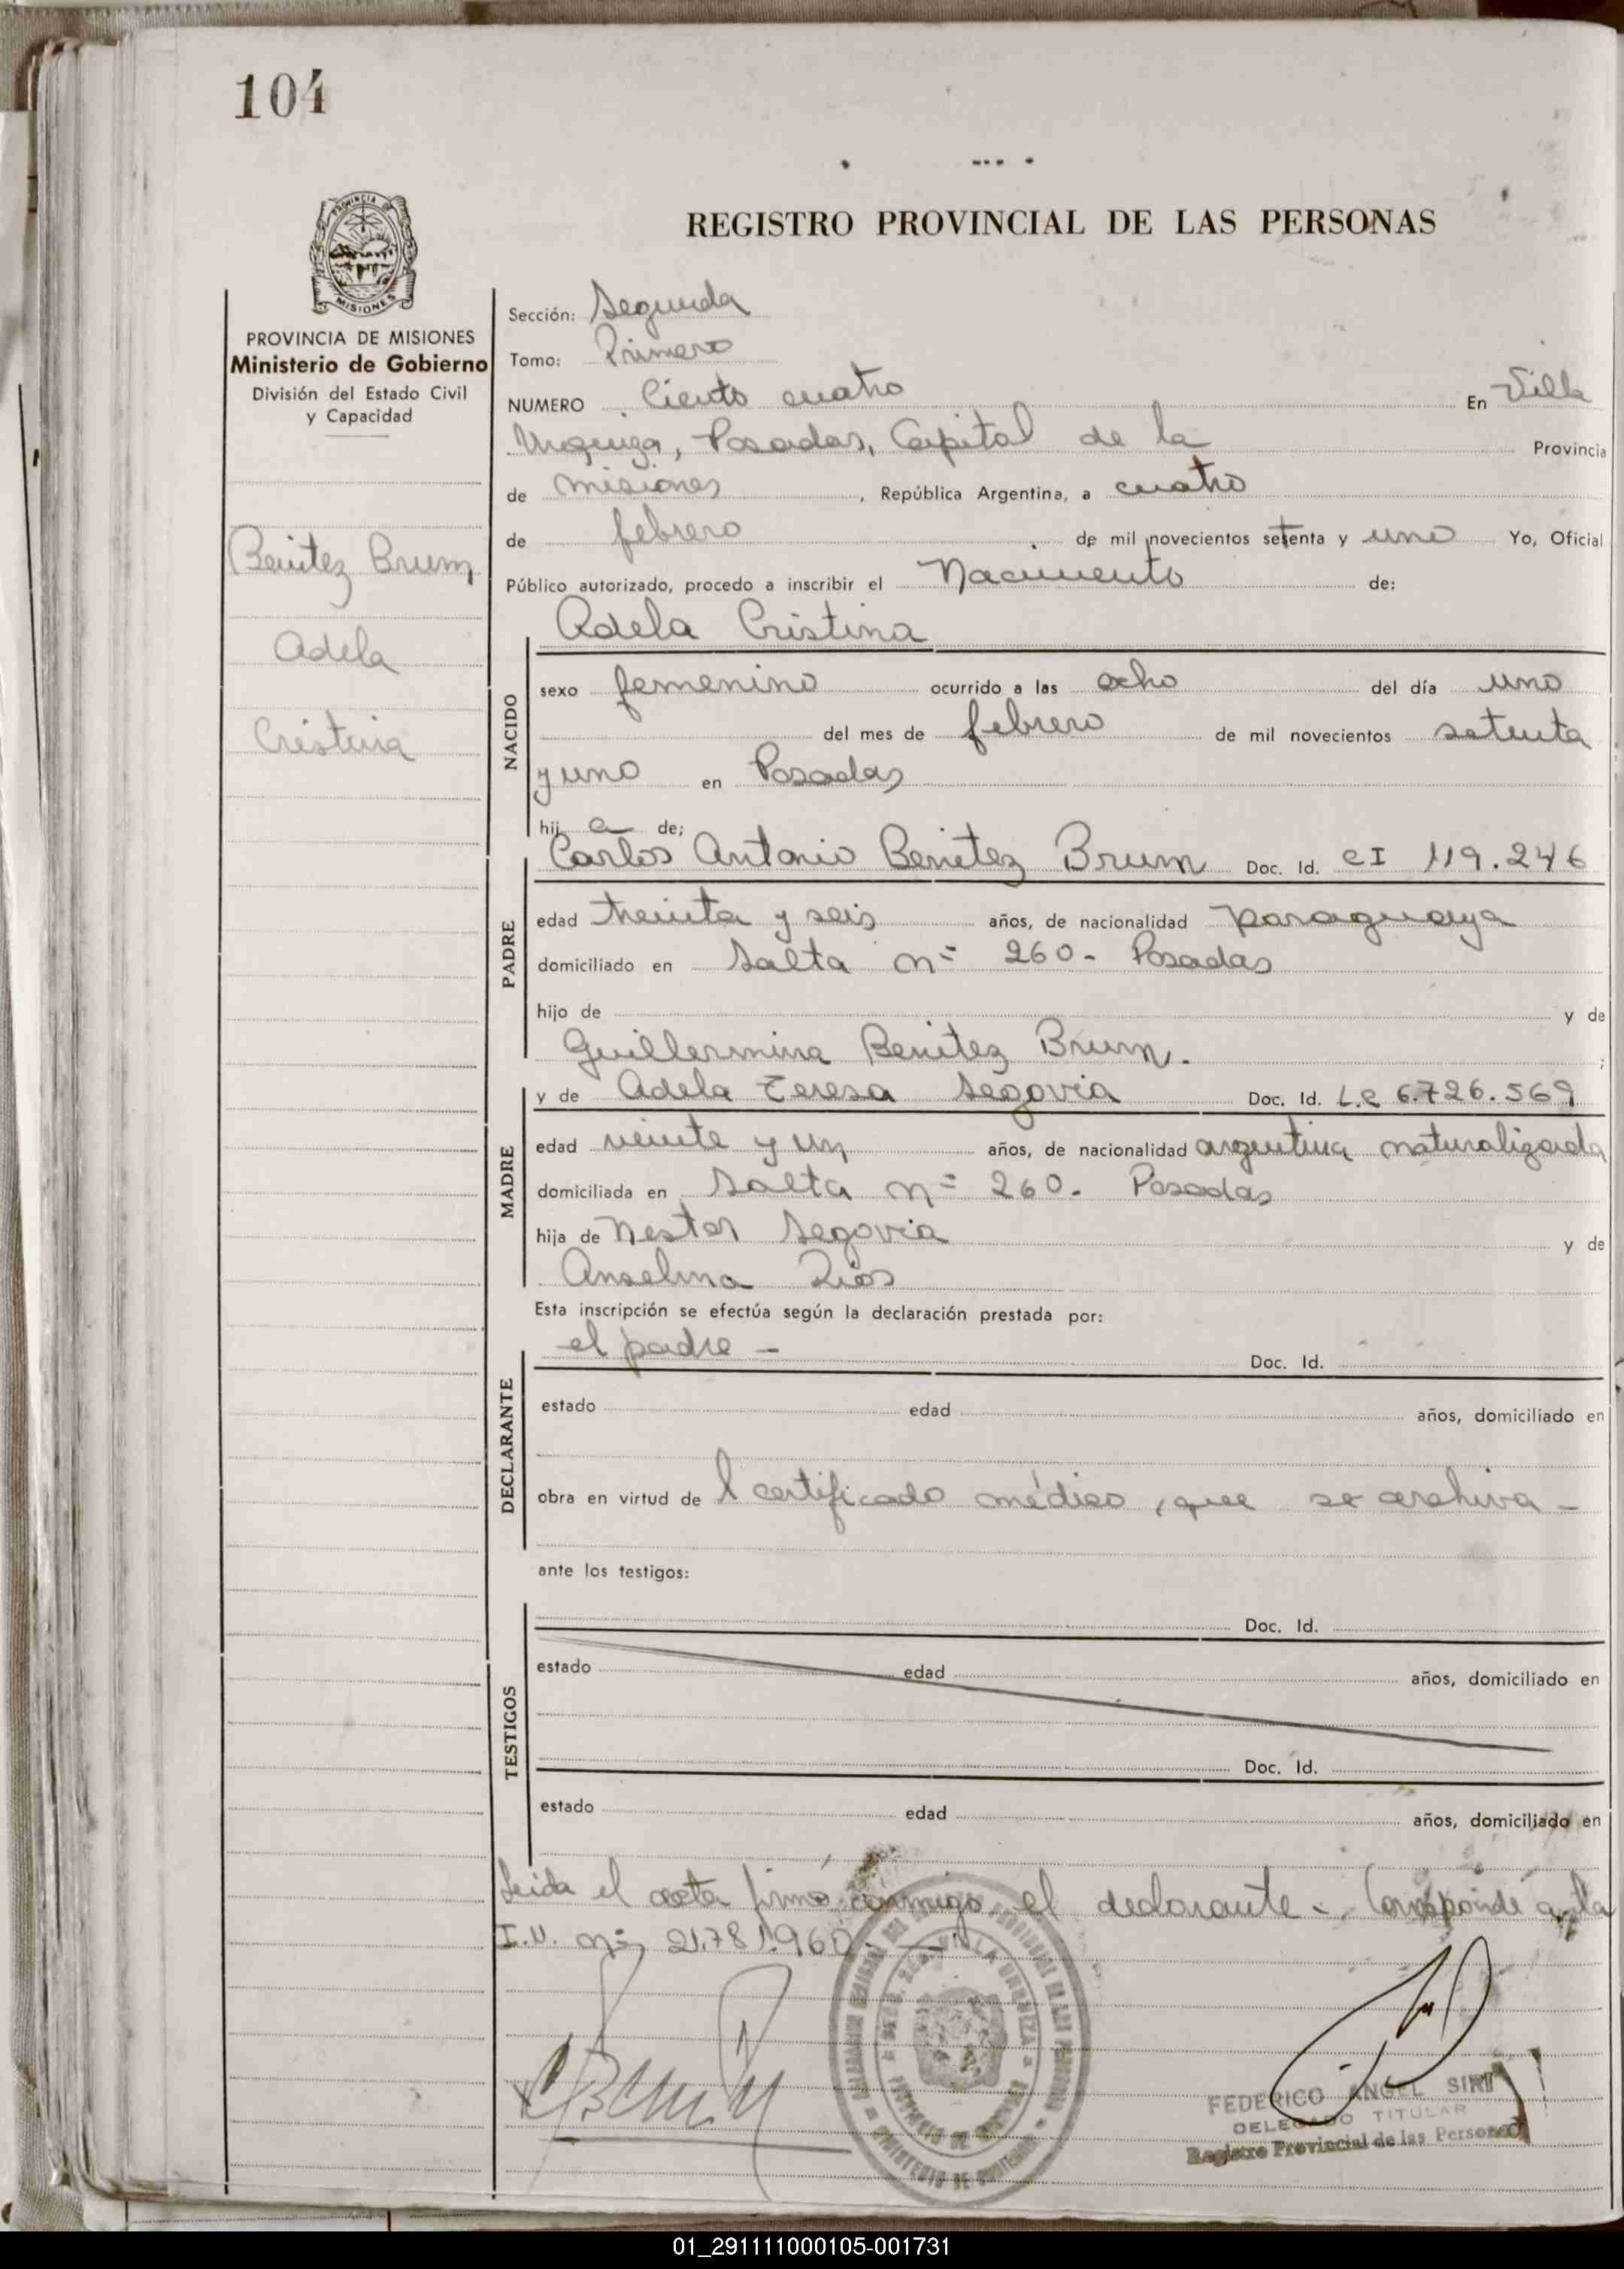 104
REGISTRO PROVINCIAL DE LAS PERSONAS
PROVINCIA DE
MISIONES
PROVINCIA DE MISIONES
Ministerio de Gobierno
División del Estado Civil
y Capacidad
Benitez Brum
Adela
Cristina
Sección: Segunda
Tomo: Primero
NUMERO Ciento cuatro En Villa
Urquiza, Posadas, Capital de la Provincia
de Misiones, República Argentina, a cuatro
de febrero de mil novecientos setenta y uno Yo, Oficial
Público autorizado, procedo a inscribir el Nacimiento de:
Adela Cristina
NACIDO
sexo femenino ocurrido a las ocho del día uno
del mes de febrero de mil novecientos setenta
y uno en Posadas
hij a de;
Carlos Antonio Benitez Brum Doc. Id. CI 119.246
PADRE
edad treinta y seis años, de nacionalidad paraguaya
domiciliado en Salta n= 260- Posadas
hijo de y de
Guillermina Benitez Brum. ;
y de Adela Teresa Segovia Doc. Id. L.C 6.726.569
MADRE
edad veinte y un años, de nacionalidad argentina naturalizada
domiciliada en Salta n= 260- Posadas
hija de Nestor Segovia y de
Anselma Rios
Esta inscripción se efectúa según la declaración prestada por:
el padre - Doc. Id.
DECLARANTE
estado edad años, domiciliado en
obra en virtud de l certificado médico, que se archiva -
ante los testigos:
Doc. Id.
TESTIGOS
estado edad años, domiciliado en
Doc. Id.
estado edad años, domiciliado en
Leida el acta firmó conmigo el declarante - Corresponde a la
I.U. n= 21.781.960
FEDERICO ANGEL
DELEGADO TITULAR
Registro Provincial de las Personas
01_291111000105-001731